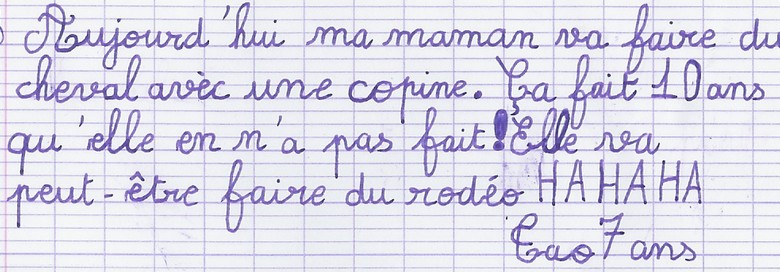 Aujourd'hui ma maman va faire du
cheval avèc une copine. Ça fait 10 ans
qu'elle en n'a pas fait! Elle va
peut-être faire du rodéo HAHAHA
Tao 7 ans